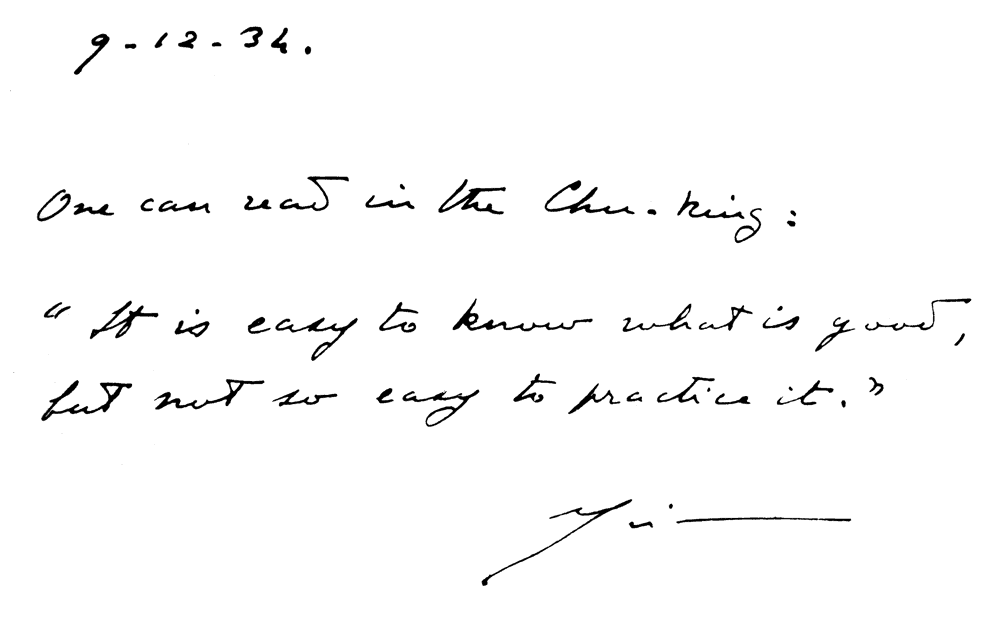 9-12-34.
One can read in the Chu-King:
“It is easy to know what is good,
but not so easy to practice it.”